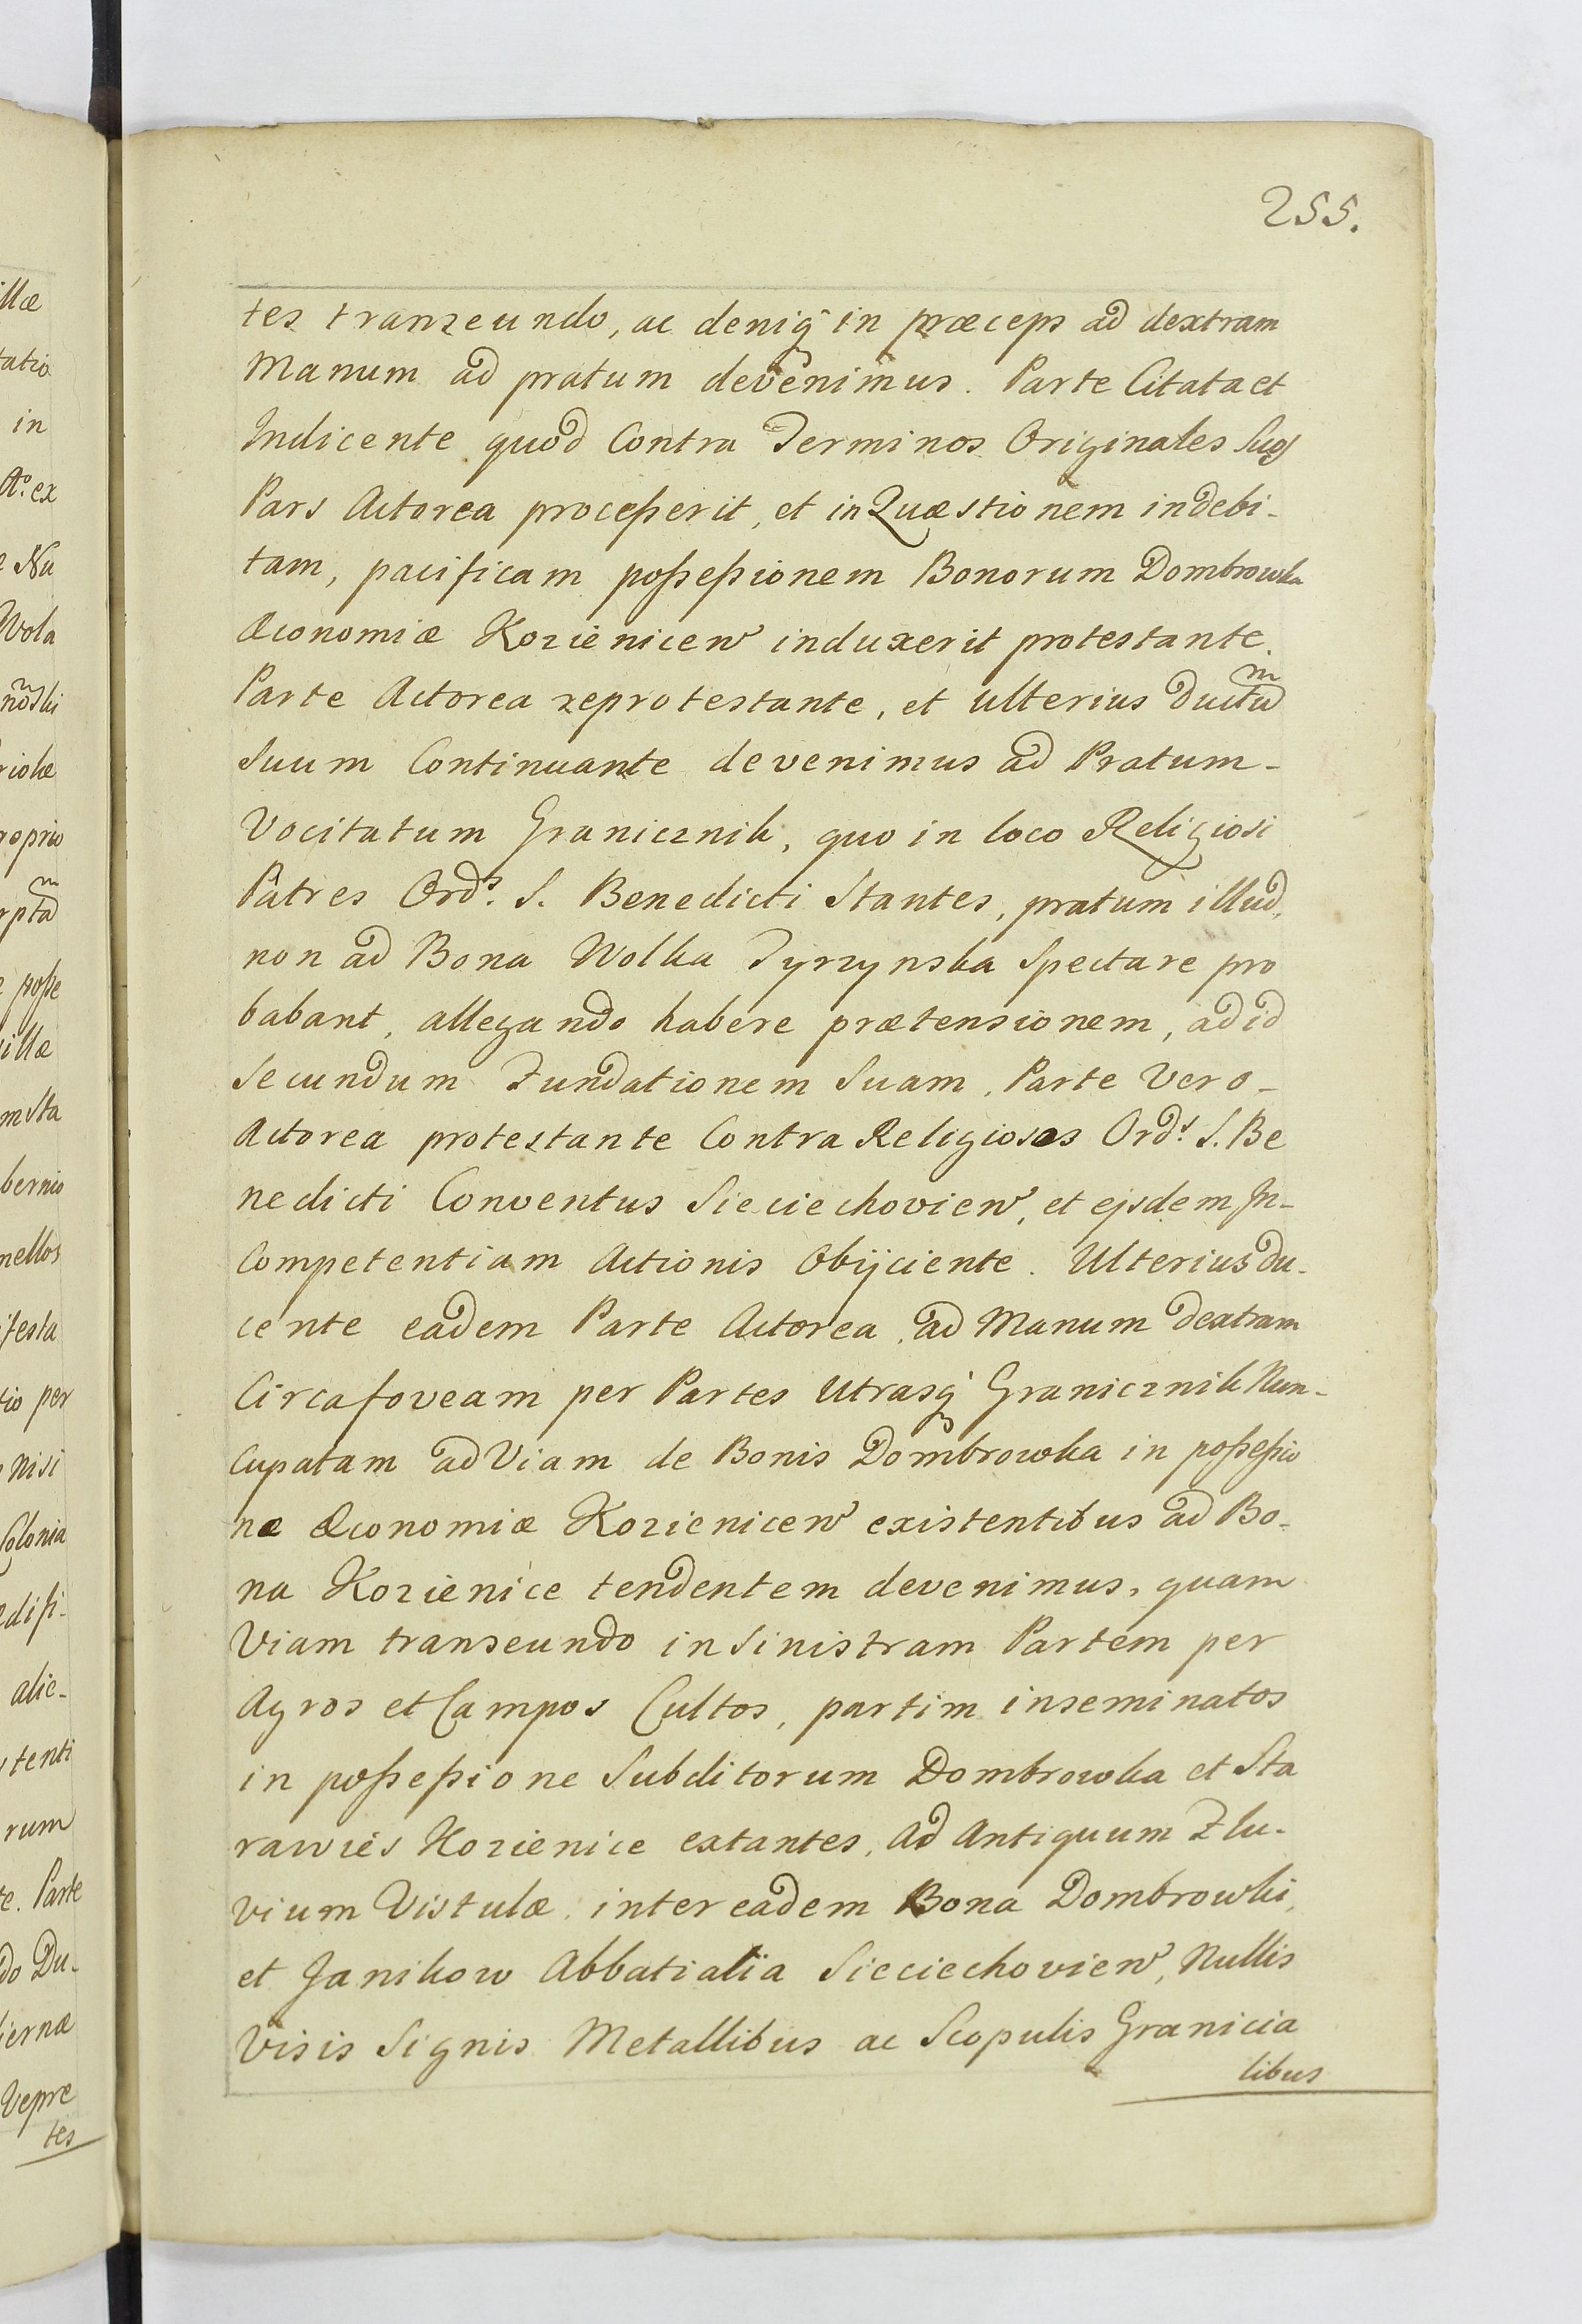 255.
tes transeundo, ac deniq in præceps ad dextram
Manum ad pratum devenimus. Parte Citata et
Indicente quod Contra Terminos Originales Suos
Pars Actorea proceßerit, et in Quæstionem indebi-
tam, pacificam poßeßionem Bonorum Dombrowka
Œconomiæ Kozienicen induxerit protestante.
Parte Actorea reprotestante, et ulterius Ductum
Suum Continuante devenimus ad Pratum-
Vocitatum Granicznik, quo in loco Religiosi
Patres Ords. S. Benedicti Stantes, pratum illud,
non ad Bona Wolka Tyrzynska Spectare pro
babant, allegando habere prætensionem, ad id
Secundum Fundationem Suam, Parte Vero-
Actorea protestante Contra Religiosos Ords. S. Be
nedicti Conventus Sieciechovien, et ejsdem In-
Competentiam Actionis Obijciente. Ulterius du-
cente eadem Parte Actorea, ad Manum dextram
Circa foveam per Partes Utrasq Granicznik Nun-
Cupatam ad Viam de Bonis Dombrowka in poßeßio
ne Œconomiæ Kozienicen existentibus ad Bo-
na Kozienice tendentem devenimus, quam
Viam transeundo in Sinistram Partem per
Agros et Campos Cultos, partim inseminatos
in poßeßione Subditorum Dombrowka et Sta
rawies Kozienice extantes, Ad Antiquum Flu-
vium Vistulæ inter eadem Bona Dombrowki,
et Janikow Abbatialia Sieciechovien, Nullis
Visis Signis Metallibus ac Scopulis Granicia
libus
illæ
tatio
in
Wola
roprio
poße
villæ
bernio
nellos
ifesta
tio per
nisi
Colonia
alie-
tenti
rum
te. Parte
do Du-
iernæ
Vepre
tes